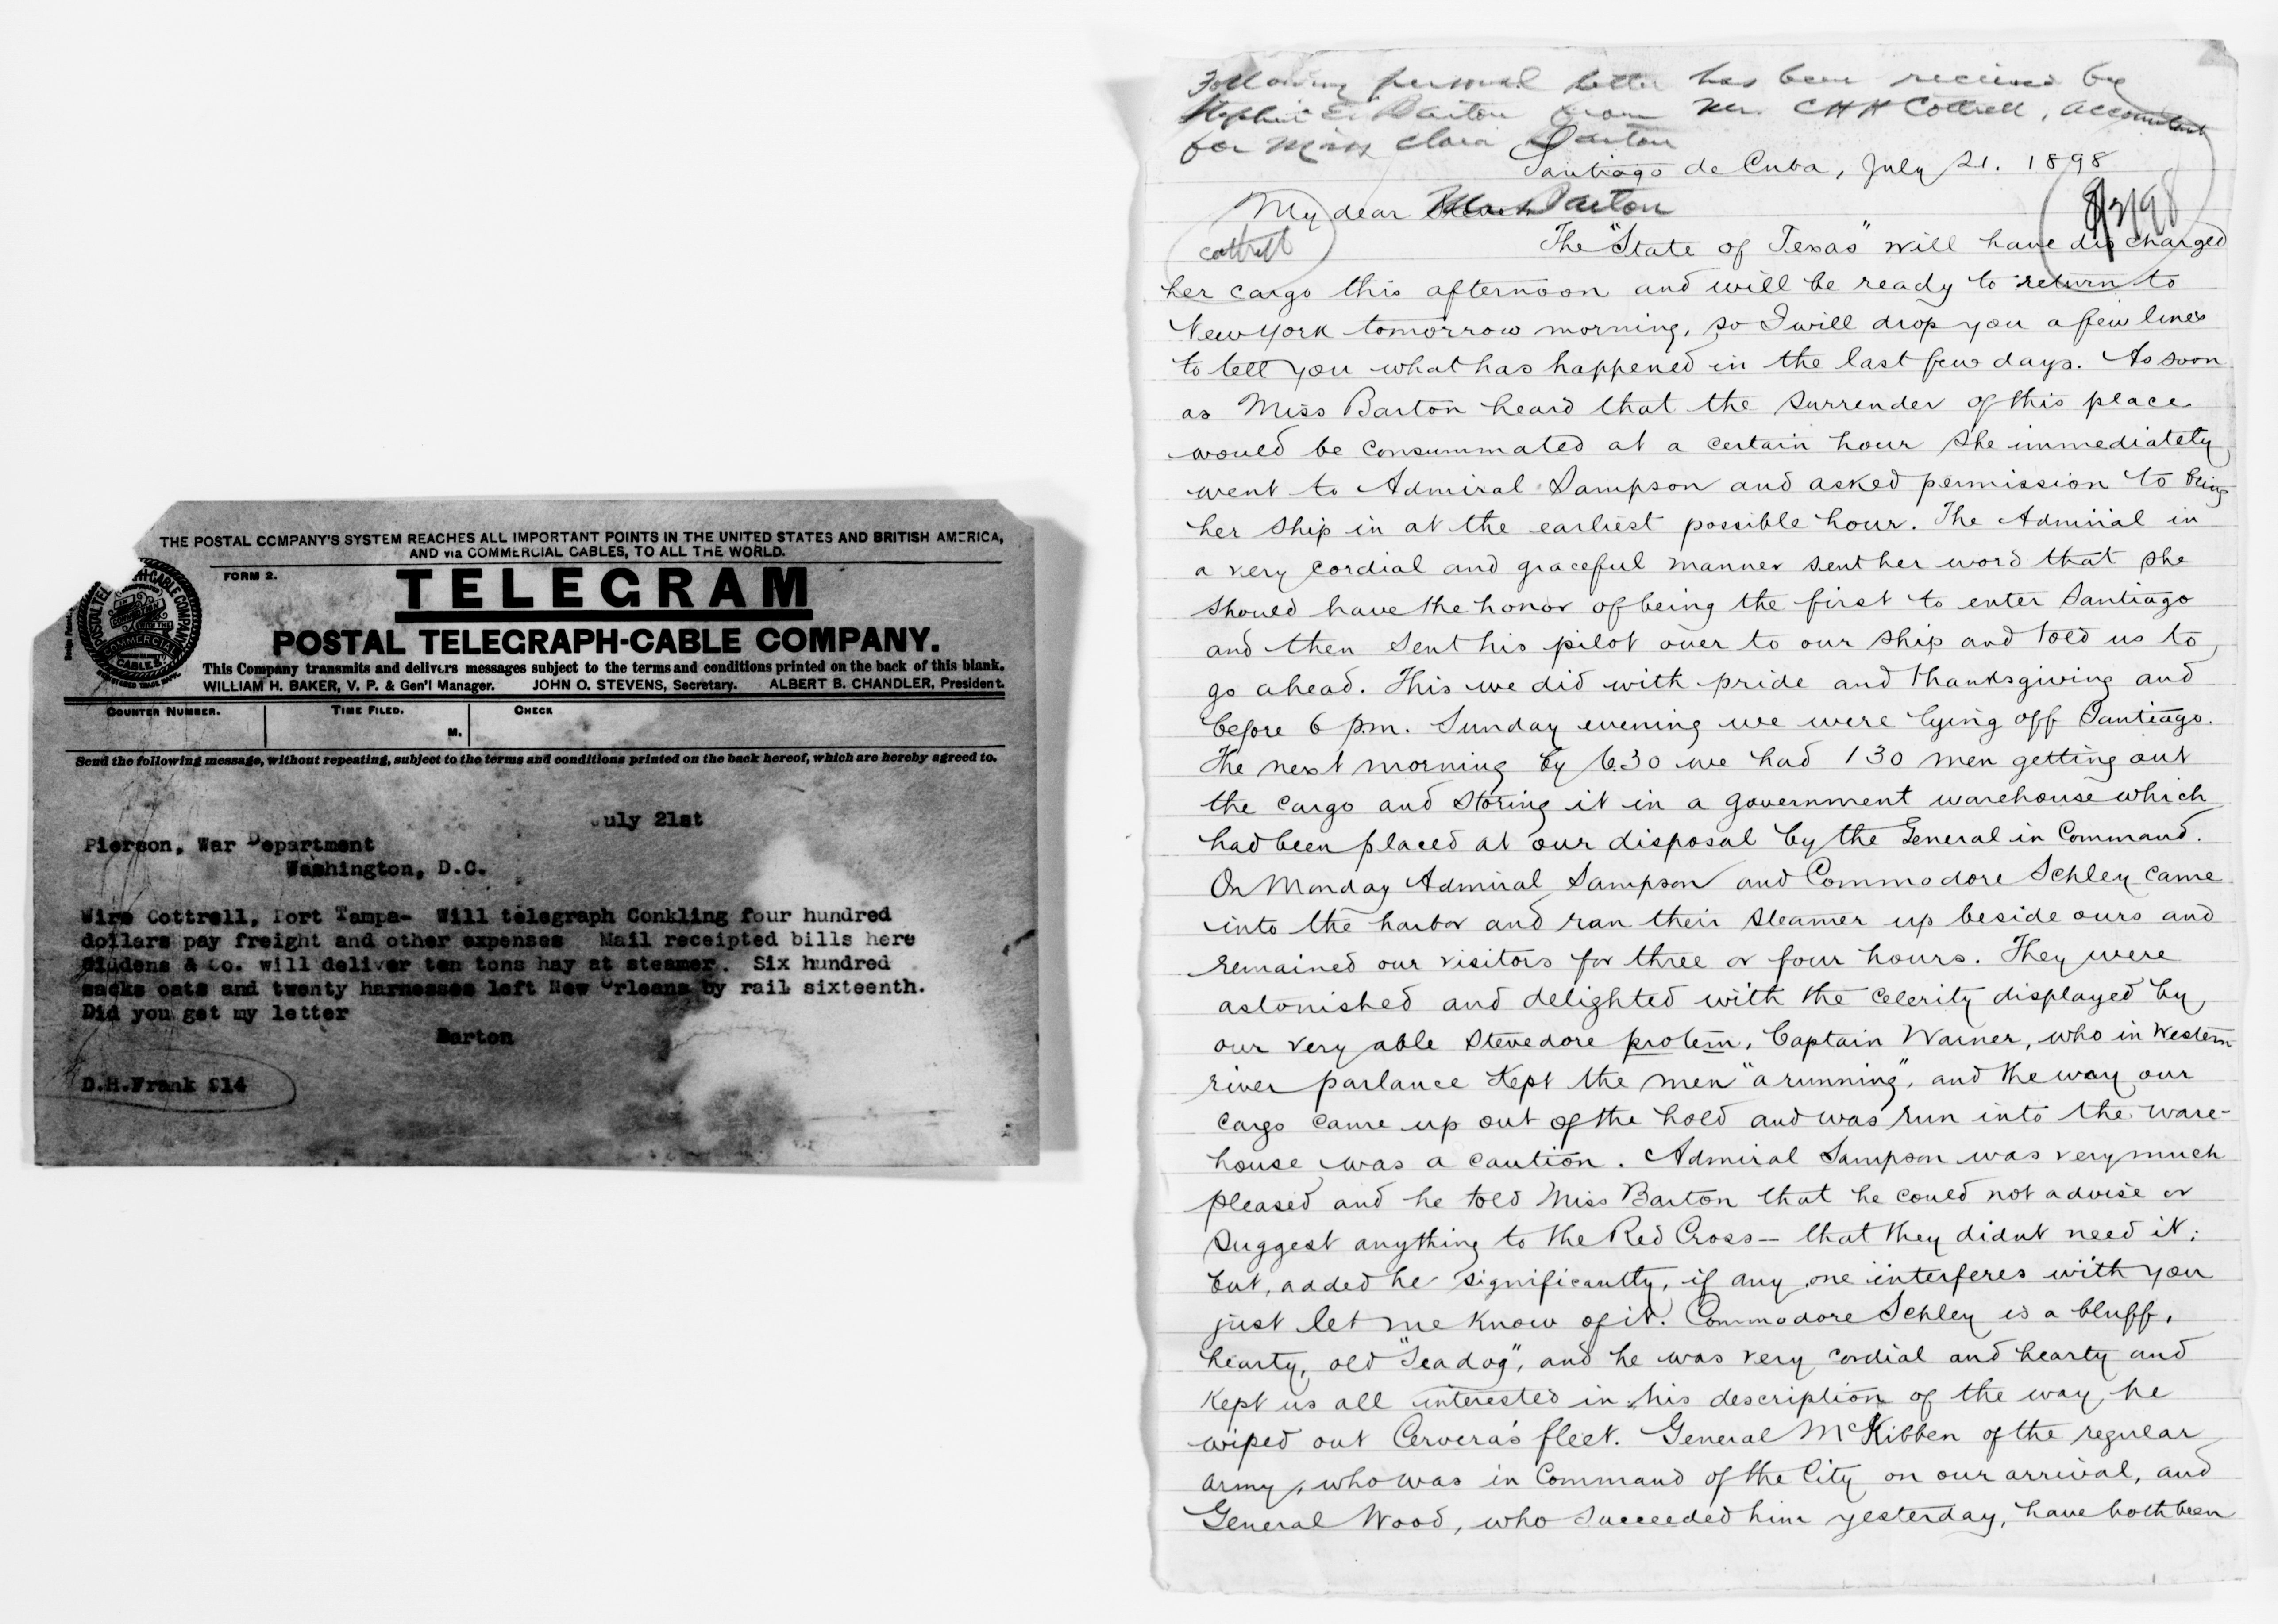 THE POSTAL COMPANY'S SYSTEM REACHES ALL IMPORTANT POINTS IN THE UNITED STATES AND BRITISH AMERICA,
AND via COMMERCIAL CABLES, TO ALL THE WORLD.
FORM 2.
TELEGRAM
POSTAL TELEGRAPH-CABLE COMPANY.
This Company transmits and delivers messages subject to the terms and conditions printed on the back of this blank.
WILLIAM H. BAKER, V. P. & Gen'l Manager. JOHN O. STEVENS, Secretary. ALBERT B. CHANDLER, President.
COUNTER NUMBER. TIME FILED. CHECK
M.
Send the following message, without repeating, subject to the terms and conditions printed on the back hereof, which are hereby agreed to.
July 21st
Pierson, War Department
Washington, D.C.
Wire Cottrell, Port Tampa- Will telegraph Conkling four hundred
dollars pay freight and other expenses Mail receipted bills here
Giddens & Co. will deliver ten tons hay at steamer. Six hundred
sacks oats and twenty harnesses left New Orleans by rail sixteenth.
Did you get my letter
Barton
D.H.Frank 214
Following personal letter has been received by
Stephen E. Barton from Mr. C H H Cottrell, accountant
for Miss Clara Barton
Santiago de Cuba, July 21. 1898
My dear Barton
8/2/98
Cottrell
The "State of Texas" will have discharged
her cargo this afternoon and will be ready to return to
New York tomorrow morning, so I will drop you a few lines
to tell you what has happened in the last few days. As soon
as Miss Barton heard that the surrender of this place
would be consummated at a certain hour she immediately
went to Admiral Sampson and asked permission to bring
her ship in at the earliest possible hour. The Admiral in
a very cordial and graceful manner sent her word that she
should have the honor of being the first to enter Santiago
and then sent his pilot over to our ship and told us to
go ahead. This we did with pride and thanksgiving and
before 6 p.m. Sunday evening we were lying off Santiago.
The next morning by 6.30 we had 130 men getting out
the cargo and storing it in a government warehouse which
had been placed at our disposal by the General in Command.
On Monday Admiral Sampson and Commodore Schley came
into the harbor and ran their steamer up beside ours and
remained our visitors for three or four hours. They were
astonished and delighted with the celerity displayed by
our very able stevedore protem, Captain Warner, who in Western
river parlance kept the men "a running", and the way our
cargo came up out of the hold and was run into the ware-
house was a caution. Admiral Sampson was very much
pleased and he told Miss Barton that he could not advise or
suggest anything to the Red Cross - that they didnt need it;
but, added he significantly, if any one interferes with you
just let me know of it. Commodore Schley is a bluff,
hearty, old "Seadog", and he was very cordial and hearty and
kept us all interested in his description of the way he
wiped out Cervera's fleet. General McKibben of the regular
army, who was in command of the City on our arrival, and
General Wood, who succeeded him yesterday, have both been